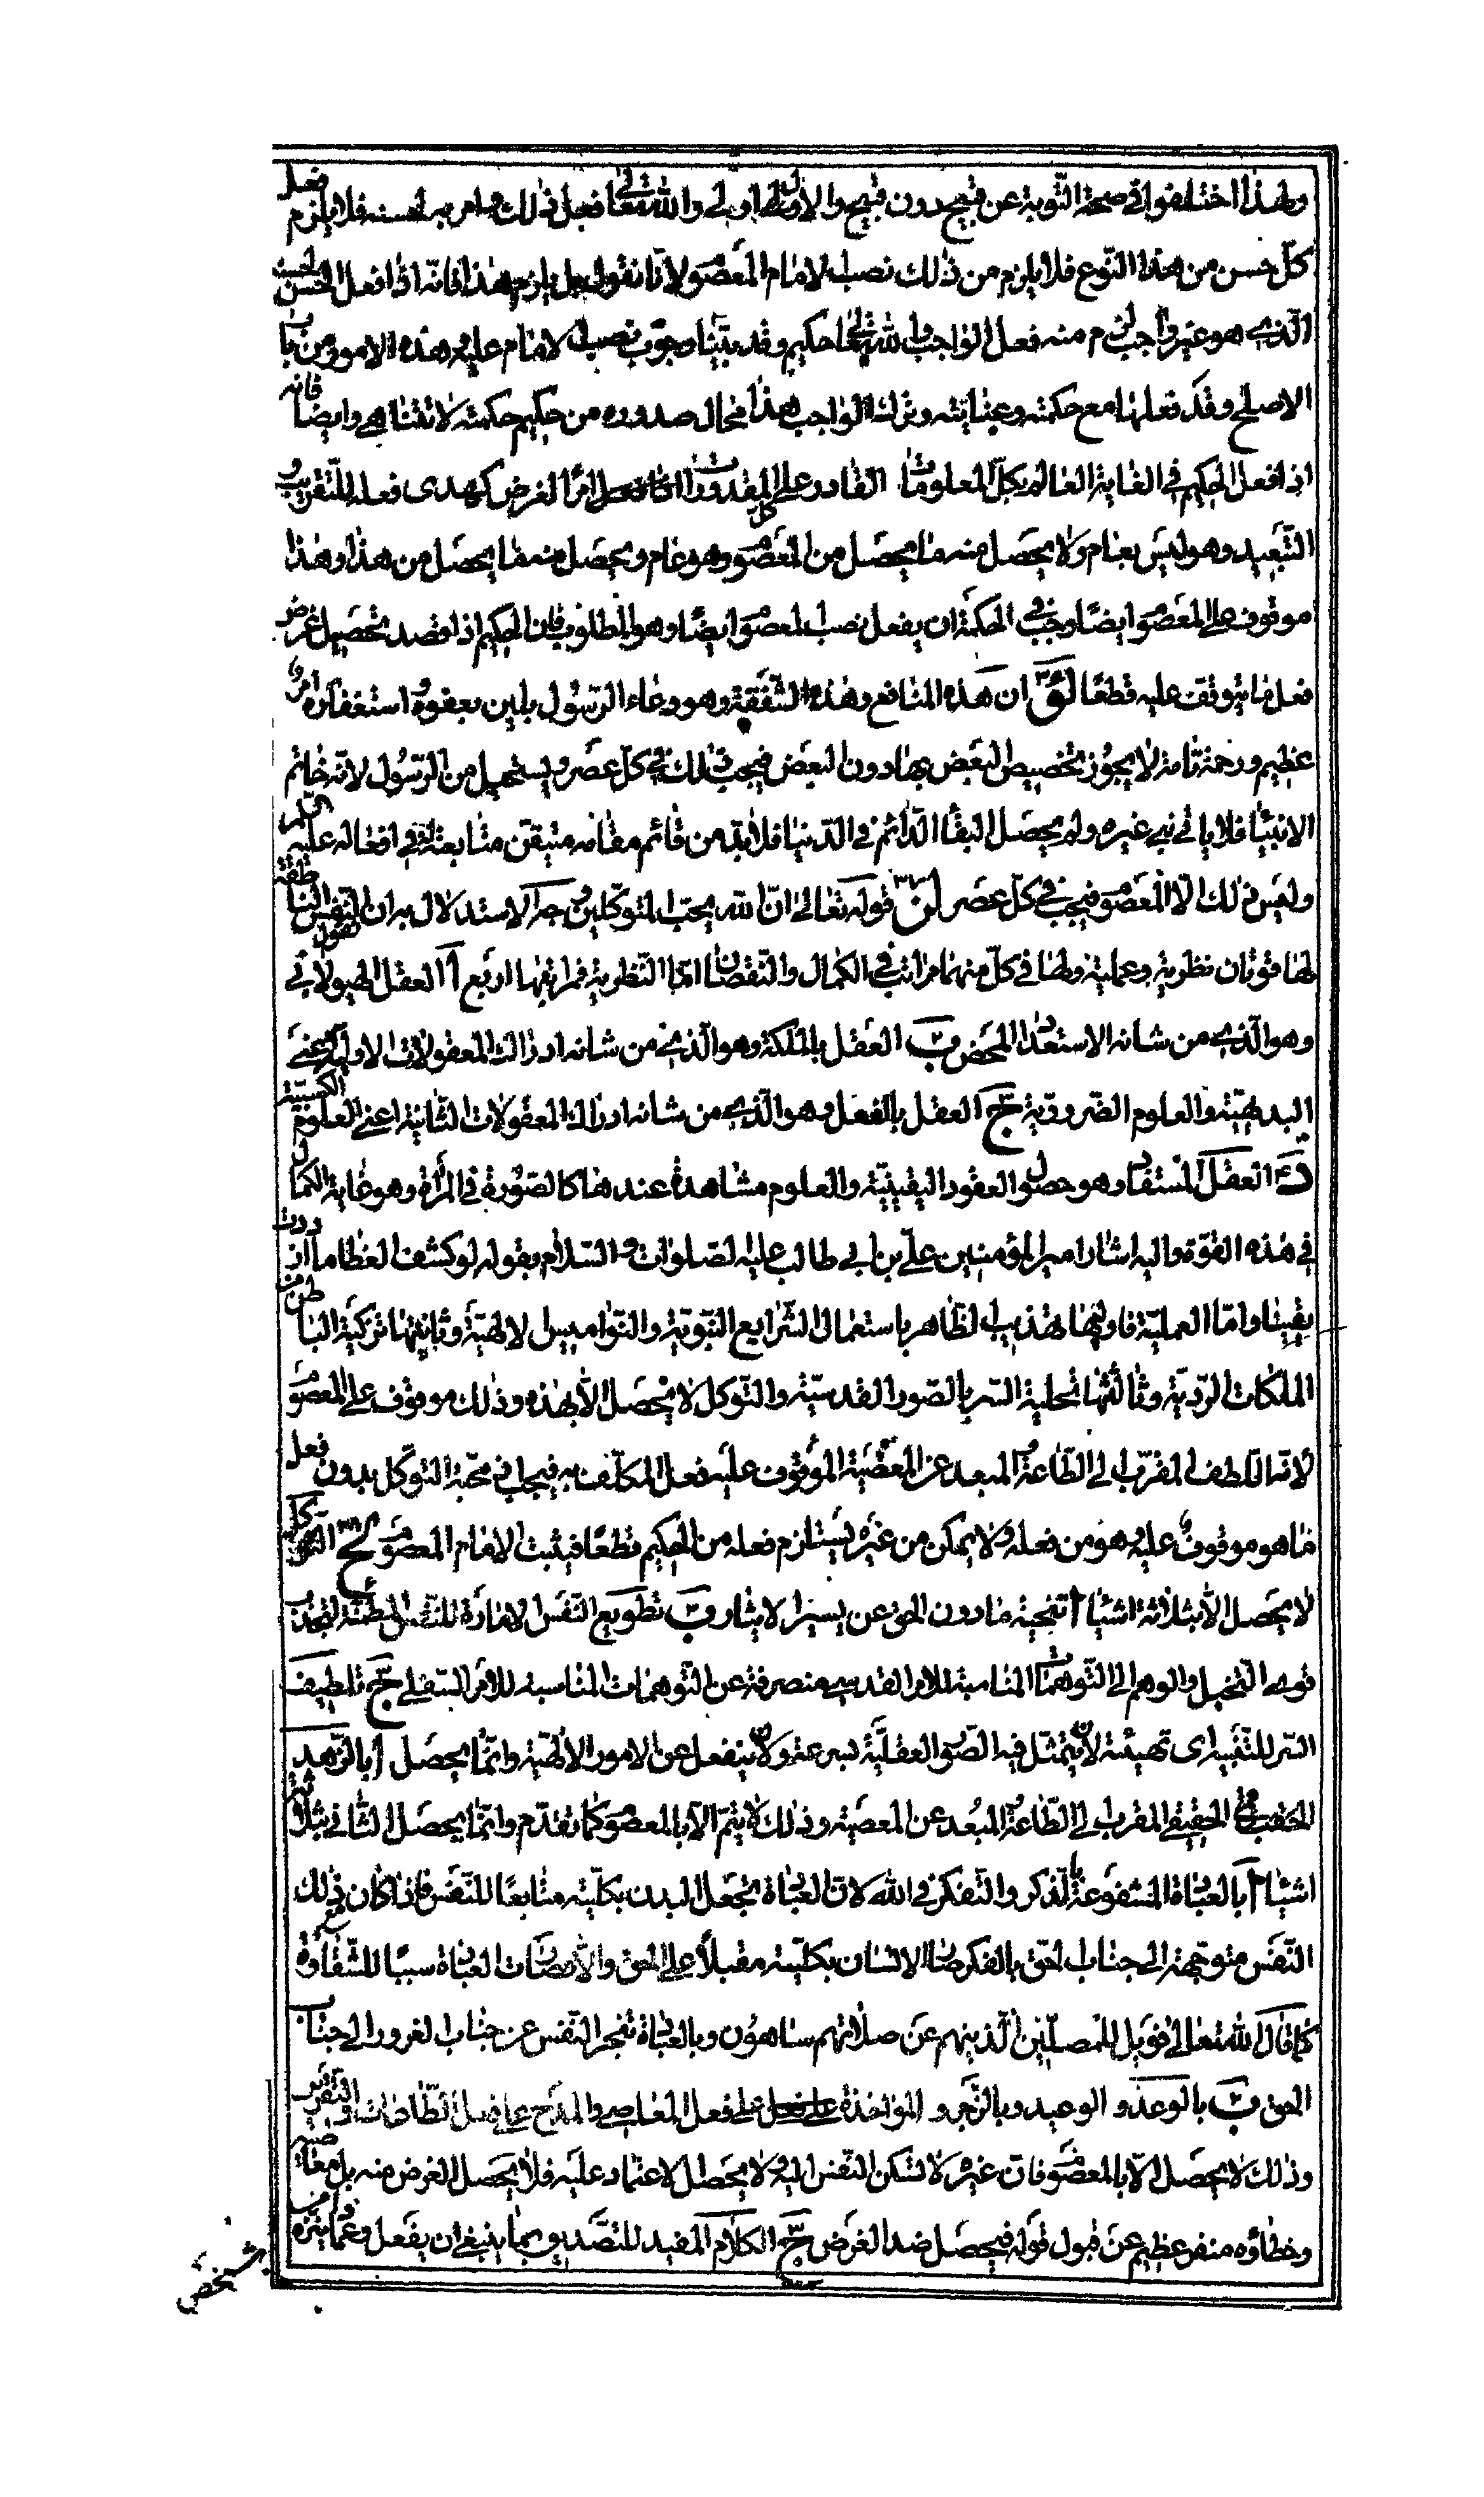 ولهذا اختلفوا في صحة التّوبة عن قبيح دون قبيح والاول اولى والله تعالى فعل ذلك وامر به لحسنه فلا يلزم فعل
كلّ حسن من هذا النّوع فلا يلزم من ذلك نصب الامام المعصوم لانّا نقول بل يلزم هذا فانّه اذا فعل الحسن لحسنه
الّذي هو غير واجب لزم منه فعل الواجب والله تعالى حكيم وقد بيّنا وجوب نصب الامام عليه وهذه الامور من باب
الاصلح وقد فعلها مع حكمته وعنايته وترك الواجب هذا محال صدوره من حكيم حكمته لا تتناهى وايضا فانه
اذا فعل الحكيم في الغاية العالم بكلّ المعلومات القادر على كل المقدورات امرًا لغرض كهدى فعله للتقريب و
التّبعيد وهو ليس بعام ولا يحصل منه ما يحصل من المعصوم وهو عام ويحصل منه ما يحصل من هذا وهذا
موقوف على المعصوم ايضًا وجب في الحكمة ان يفعل نصب المعصوم ايضًا وهو المطلوب فان الحكيم اذا قصد تحصيل غرض
فعل ما يتوقف عليه قطعًا لو ان هذه المنافع وهذه الشّفقة وهو دعاء الرّسول بلين بعفوه و استغفاره امر
عظيم ورحمة تامة لا يجوز تخصيص البعض بها دون البعض فيجب ذلك في كلّ عصر ويستحيل من الرّسول لانّه خاتم
الانبياء فلا ياتي نبي غيره ولم يحصل البقاء الدّائم في الدّنيا فلا بدّ من قائم مقامه متيقن متابعته في افعاله عليه السّلام
وليس ذلك الّا المعصوم فيجب في كلّ عصر لز قوله تعالى انّ الله يحبّ المتوكّلين وجه الاستدلال به ان نقول النّفس الناطقة
لها قوتان نظرية وعملية ولها في كلّ منهما مراتب في الكمال والنّقصان امّا النّظرية فمراتبها اربع آ العقل الهيولاني
وهو الّذي من شانه الاستعداد المحض ب العقل بالملكة وهو الّذي من شانه ادراك المعقولات الاولية اعني
البديهيّة والعلوم الضّروريّة ج العقل بالفعل وهو الّذي من شانه ادراك المعقولات الثّانية اعني العلوم الكسبيّة
د العقل المستفاد وهو حصول العقود اليقينيّة والعلوم مشاهدة عندها كالصّورة في المرآة وهو غاية الكمال
في هذه القوّة واليه اشار امير المؤمنين عليّ بن ابي طالب عليه الصّلوات و السّلام بقوله لو كشف الغطا ما ازددت
يقينا وامّا العمليّة فاوليها تهذيب الظّاهر باستعمال الشّرايع النّبويّة والنّواميس الالهيّة وثانيتها تزكية الباطن من
الملكات الرّديّة وثالثتها تحلية السّر بالصّور القدسيّة والتّوكل لا يحصل الّا بهذه وذلك موقوف على المعصوم
لانّه اللّطف المقرّب الى الطّاعة و المبعد عن المعصية الموقوف عليه فعل المكلّف به فيجب في محبّة التوكّل بدون فعل
ما هو موقوف عليه و هو من فعله و لا يمكن من غيره يستلزم فعله من الحكيم قطعًا فيثبت الامام المعصوم لح التّوكل
لا يحصل الّا بثلاثة اشياء آ تنحية ما دون الحق عن يسير الايثار ب تطويع النّفس الامارة للنّفس المطمئنّة لتجذب
قوى التّخيل والوهم الى التّوهمات المناسبة للامر القدسي منصرفة عن التّوهمات المناسبة للامر السّفلي ج تلطيف
السّر للتّنبيه اى تهيئته لان يتمثّل فيه الصّور العقليّة بسرعة ولان ينفعل عن الامور الالهيّة وانّما يحصل آ بالزّهد
الحقيقي المقرب الى الطّاعة المبعد عن المعصية وذلك لا يتمّ الّا بالمعصوم كما تقدّم وانّما يحصل الثّاني بثلاثة
اشياء آ بالعبادة المشفوعة بالذّكر والتّفكر في الله لانّ العبادة تجعل البدن بكلّيته متابعًا للنّفس فاذا كان ذلك مع
النّفس متوجّهة الى جناب الحق بالفكر صار الانسان بكلّيته مقبلًا على الحق والّا لصارت العبادة سببًا للشّقاوة
كما قال الله تعالى فويل للمصلّين الّذين هم عن صلاتهم ساهون وبالعبادة تنجر النّفس عن جناب الغرور الى جناب
الحق ب بالوعد و الوعيد وبالزّجر و المؤاخذة على فعل المعاصي والمدح على فعل الطّاعات والتّقريب
وذلك لا يحصل الّا بالمعصوم فان غيره لا تسكن النّفس اليه ولا يحصل الاعتماد عليه فلا يحصل الغرض منه بل معاصيه
وخطاؤه منفر عظيم عن قبول قوله فيحصل ضد الغرض ج الكلام المفيد للتّصديق بما ينبغي ان يفعل وامر